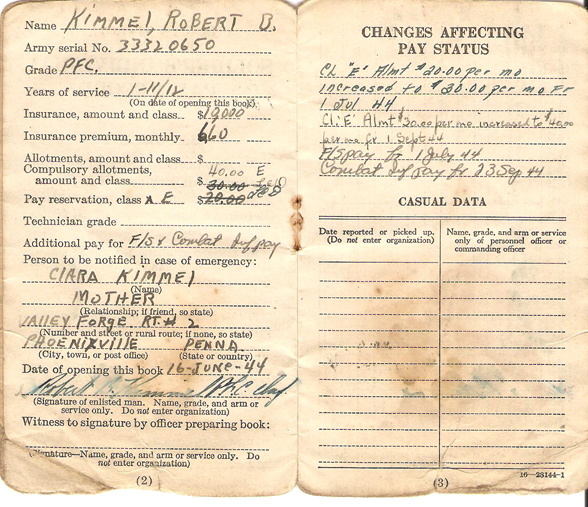 Name KIMMEL, ROBERT B.
Army serial No. 33320650
Grade PFC.
Years of service 1-11/12
(On date of opening this book)
Insurance, amount and class $10,000
Insurance premium, monthly. 6.60
Allotments, amount and class $
Compulsory allotments, 40.00 E
amount and class. $ 30.00
Pay reservation, class A E $20.00
Technician grade
Additional pay for F/S & Combat Inf pay
Person to be notified in case of emergency:
CLARA KIMMEL
(Name)
MOTHER
(Relationship; if friend, so state)
VALLEY FORGE RT. # 2
(Number and street or rural route; if none, so state)
PHOENIXVILLE PENNA.
(City, town, or post office) (State or country)
Date of opening this book 16-JUNE-44
Robert B. Kimmel Pfc Inf
(Signature of enlisted man. Name, grade, and arm or
service only. Do not enter organization)
Witness to signature by officer preparing book:
(Signature—Name, grade, and arm or service only. Do
not enter organization)
(2)
CHANGES AFFECTING
PAY STATUS
CL "E" Almt $20.00 per mo
increased to $30.00 per mo Fr
1 Jul 44
Cl. E' Almt $30.00 per mo. increased to $40.00
per mo fr 1 Sept 44
F/S pay fr 1 July 44
Combat Inf pay fr 23 Sep 44
CASUAL DATA
Date reported or picked up.
(Do not enter organization)
Name, grade, and arm or service
only of personnel officer or
commanding officer
16—28144-1
(3)